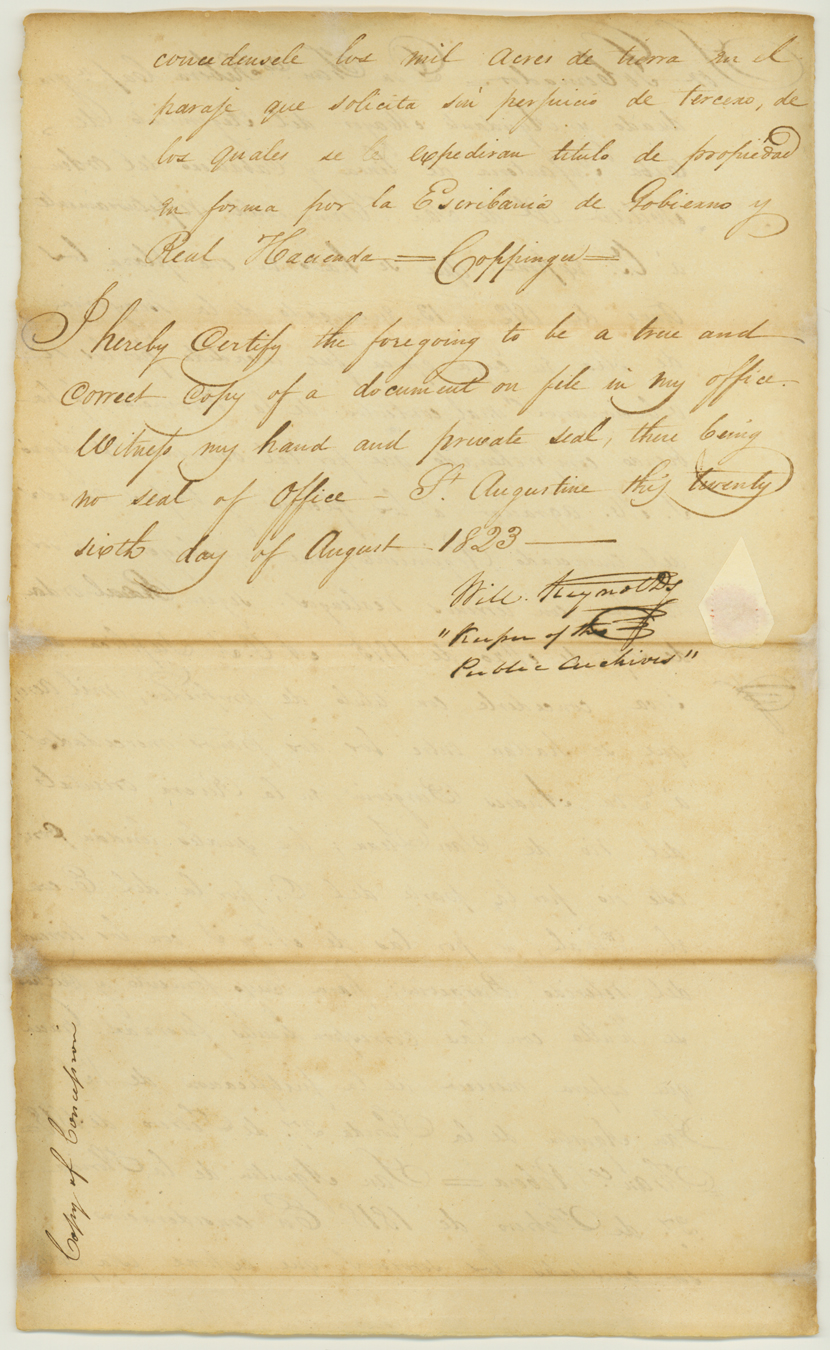 concedensele los mil acres de tierra en el
paraje que solicita sin perjuicio de tercero, de
los quales se le expediran titulo de propiedad
en forma por la Escribania de Gobierno y
Real Hacienda = Coppinger =
I hereby Certify the foregoing to be a true and
Correct Copy of a document on file in my office.
Witness my hand and private seal, there being
no seal of Office - St. Augustine this twenty
sixth day of August 1823
Will. Reynolds
"Keeper of the
Public Archives"
Copy of Concession